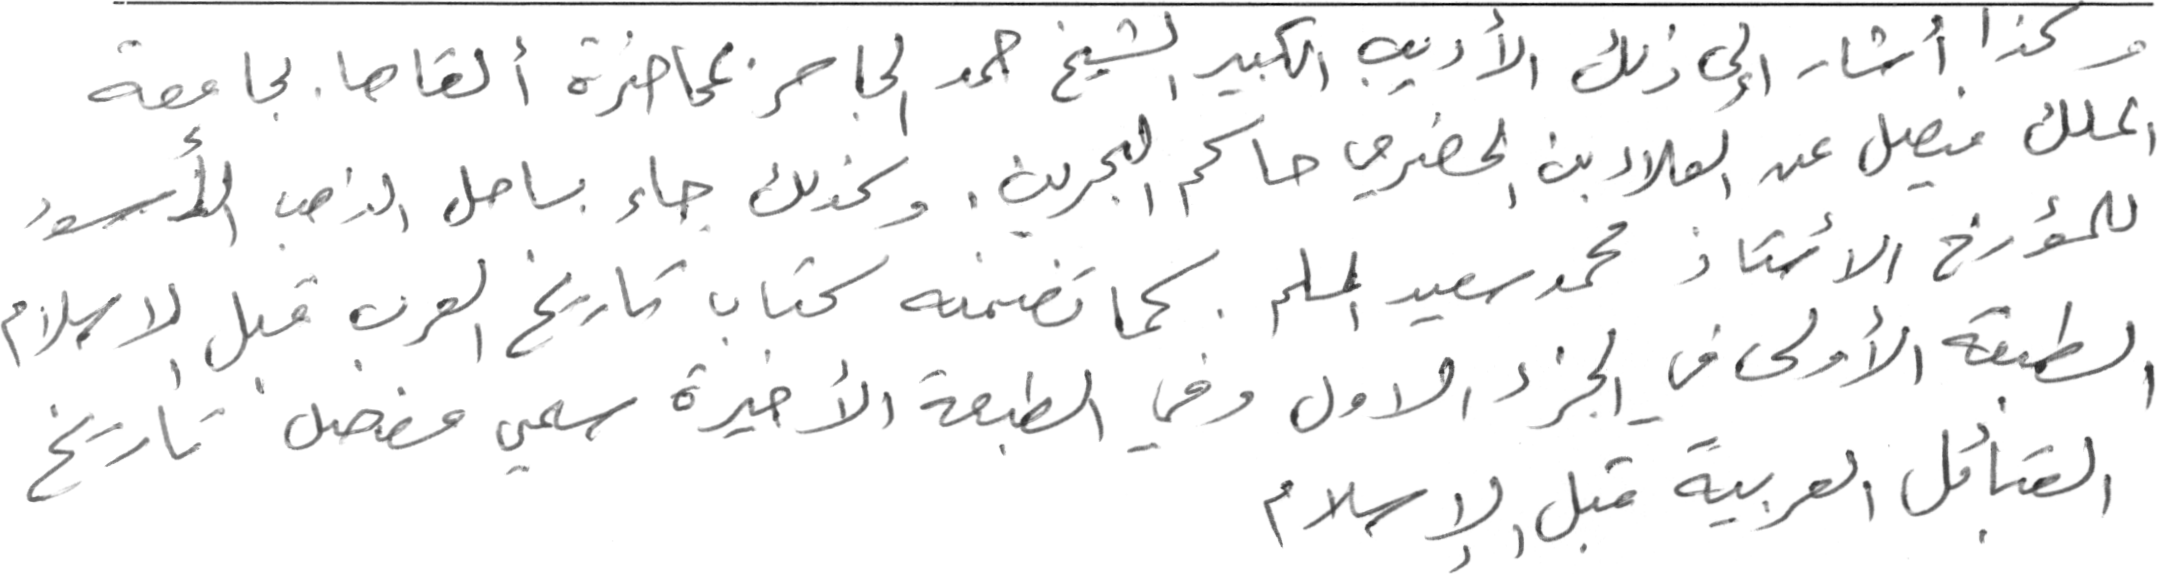 وكذا أشار إلى ذلك الأديب الكبير الشيخ حمد الجاسر بمحاضرة ألقاها بجامعة
الملك فيصل عن العلاء بن الحضرمي حاكم البحرين، وكذلك جاء بساحل الذهب الأسود
للمؤرخ الأستاذ محمد سعيد المسلم. كما تضمنه كتاب تاريخ العرب قبل الاسلام
الطبعة الأولى في الجزء الاول وفي الطبعة الأخيرة سمي مفصل تاريخ
القبائل العربية قبل الإسلام